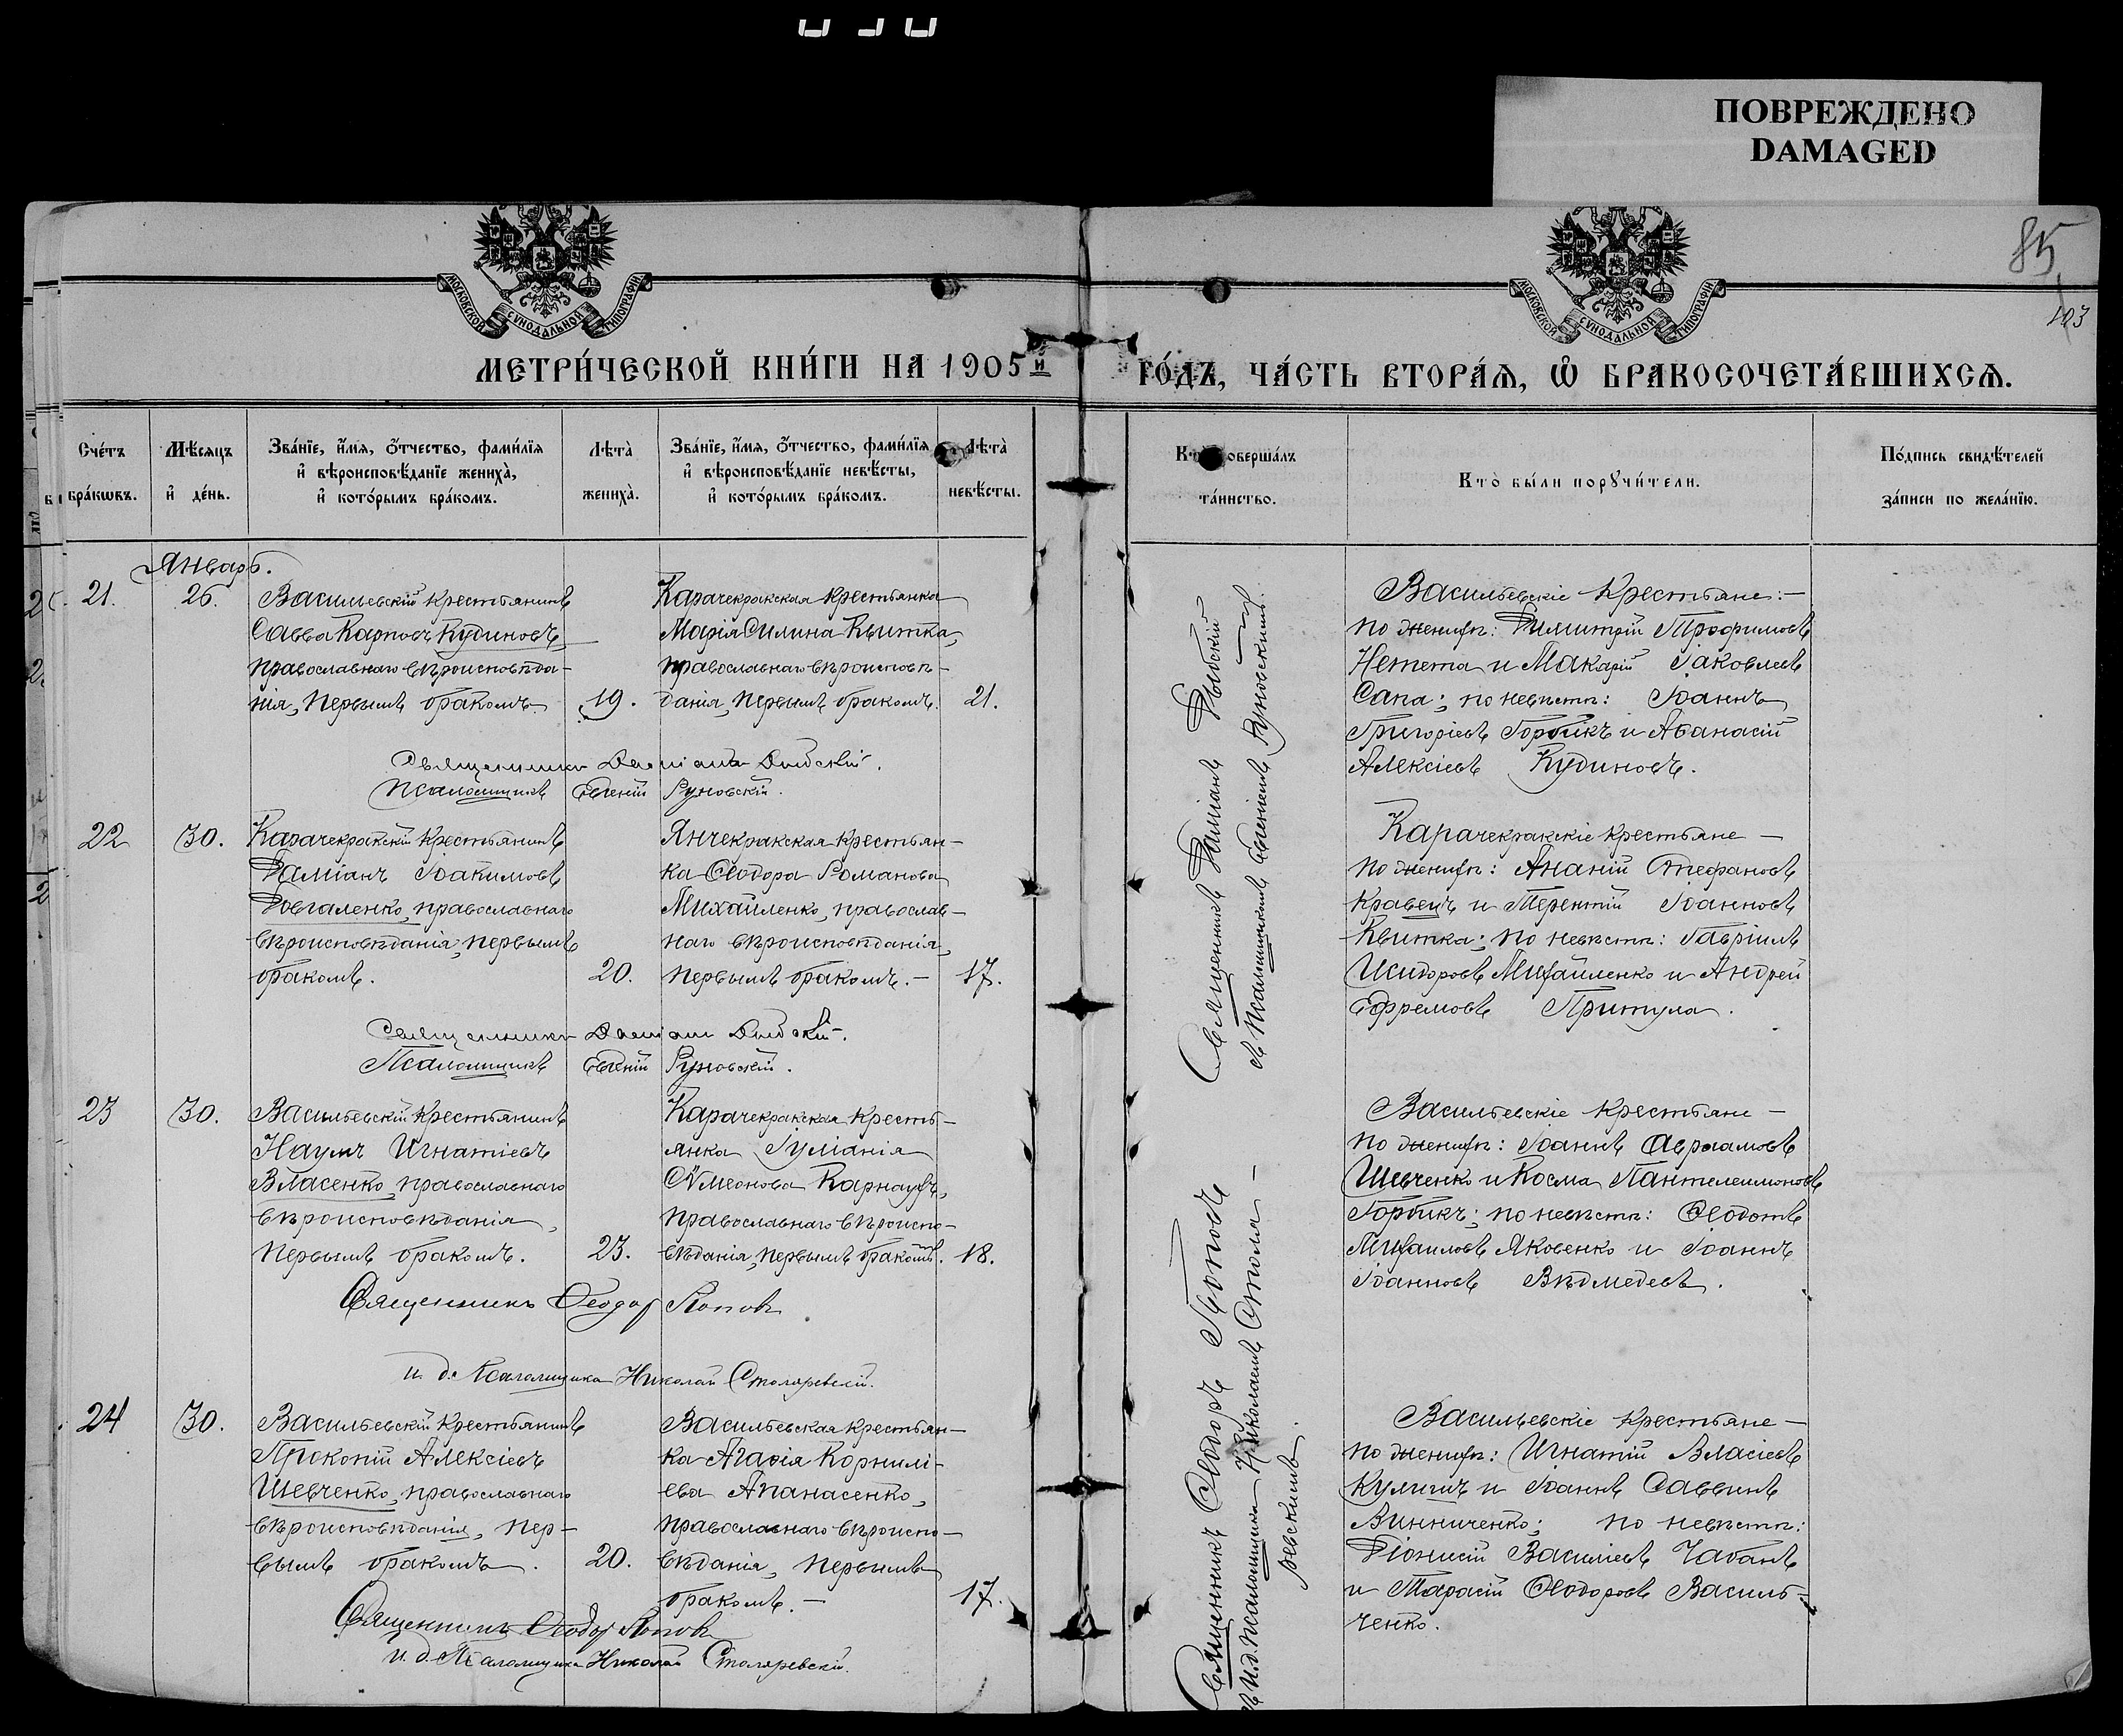 ПОВРЕЖДЕНО
DAMAGED
85
103
МОСКОВСКОЙ СѴНОДАЛЬНОЙ ТИПОГРАФІИ
МОСКОВСКОЙ СѴНОДАЛЬНОЙ ТИПОГРАФІИ
МЕТРИ́ЧЕСКОЙ КНИ́ГИ НА 1905й
ГО́ДЪ, ЧА́СТЬ ВТОРА́Ѧ, Ѡ БРАКОСОЧЕТА́ВШИХСѦ.
Сче́тъ бра́кѡвъ.
Мѣ́сяцъ и҆ де́нь.
Зва́нїе, и҆́мя, ѻ҆́тчество, фами́лїя и҆ вѣроисповѣ́данїе жениха̀, и҆ кото́рымъ бра́комъ.
Лѣта̀ жениха̀.
Зва́нїе, и҆́мя, ѻ҆́тчество, фами́лїя и҆ вѣроисповѣ́данїе невѣ́сты, и҆ кото́рымъ бра́комъ.
Лѣта̀ невѣ́сты.
Кто̀ соверша́лъ та́инство.
Кто̀ бы́ли порꙋчи́тели.
По́дпись свидѣ́телей за́писи по жела́нїю.
Январь.
21.
26.
Васильевскій крестьянинъ
Савва Карповъ Кудиновъ,
православнаго вѣроисповѣда-
нія, первымъ бракомъ.
19.
Карачекракская крестьянка
Марія Силина Квитка,
православнаго вѣроисповѣ-
данія, первымъ бракомъ.
21.
Васильевскіе крестьяне:-
по женихѣ: Димитрій Трофимовъ
Нетета и Макарій Іаковлевъ
Сапа; по невѣстѣ: Іоаннъ
Григоріевъ Горбикъ и Аѳанасій
Алексіевъ Кудиновъ.
Священникъ Даміанъ Дыбскій.
Псаломщикъ Евгеній Руновскій.
22
30.
Карачекракскій крестьянинъ
Даміанъ Іоакимовъ
Довгаленко, православнаго
вѣроисповѣданія, первымъ
бракомъ.
20.
Янчекракская крестьян-
ка Ѳеодора Романова
Михайленко, православ-
наго вѣроисповѣданія,
первымъ бракомъ.-
17.
Карачекракскіе крестьяне -
по женихѣ: Ананій Стефановъ
Кравецъ и Терентій Іоанновъ
Квитка; по невѣстѣ: Гавріилъ
Исидоровъ Михайленко и Андрей
Ефремовъ Притула.
Священникъ Даміанъ Дыбскій.
Псаломщикъ Евгеній Руновскій.
Священникъ Даміанъ Дыбскій
съ псаломщикомъ Евгеніемъ Руновскимъ.
23
30.
Васильевскій крестьянинъ
Наумъ Игнатіевъ
Власенко, православнаго
вѣроисповѣданія,
первымъ бракомъ.
23.
Карачекракская кресть-
янка Іуліанія
Сѵмеонова Карнаухъ,
православнаго вѣроиспо-
вѣданія, первымъ бракомъ.
18.
Васильевскіе крестьяне -
по женихѣ: Іоаннъ Авраамовъ
Шевченко и Косма Пантелеимоновъ
Горбикъ; по невѣстѣ: Ѳеодотъ
Михаиловъ Яковенко и Іоаннъ
Іоанновъ Вѣдмедевъ.
Священникъ Ѳеодоръ Поповъ
И. д. Псаломщика Николай Столяревскій.
24
30.
Васильевскій крестьянинъ
Прокопій Алексіевъ
Шевченко, православнаго
вѣроисповѣданія, пер-
вымъ бракомъ.
20.
Васильевская крестьян-
ка Агаѳія Корнилі-
ева Апанасенко,
православнаго вѣроиспо-
вѣданія, первымъ
бракомъ.-
17.
Васильевскіе крестьяне -
по женихѣ: Игнатій Власіевъ
Кулишъ и Іоаннъ Саввинъ
Винниченко; по невѣстѣ:
Діонисій Василіевъ Чабанъ
и Тарасій Ѳеодоровъ Василь-
ченко.
Священникъ Ѳеодоръ Поповъ
И. д. Псаломщика Николай Столяревскій.
Священникъ Ѳеодоръ Поповъ
съ И. д. псаломщика Николаемъ Столя-
ревскимъ.